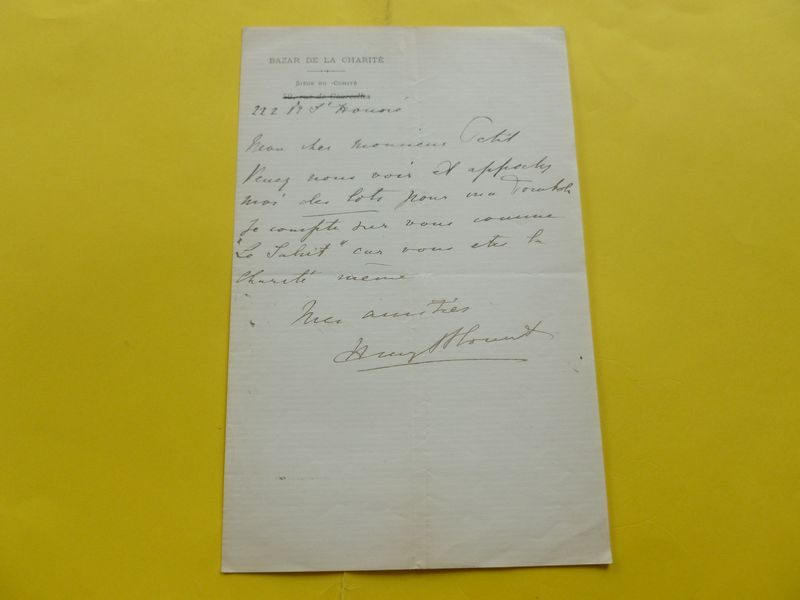 BAZAR DE LA CHARITÉ
SIÈGE DU COMITÉ
50, rue de Courcelles
222 St Honoré
Mon cher monsieur Petit
Venez nous voir et apportez
moi des lots pour ma Tombola
Je compte sur vous comme
"Le Salut" car vous etes la
Charité même
Mes amitiés
Blount